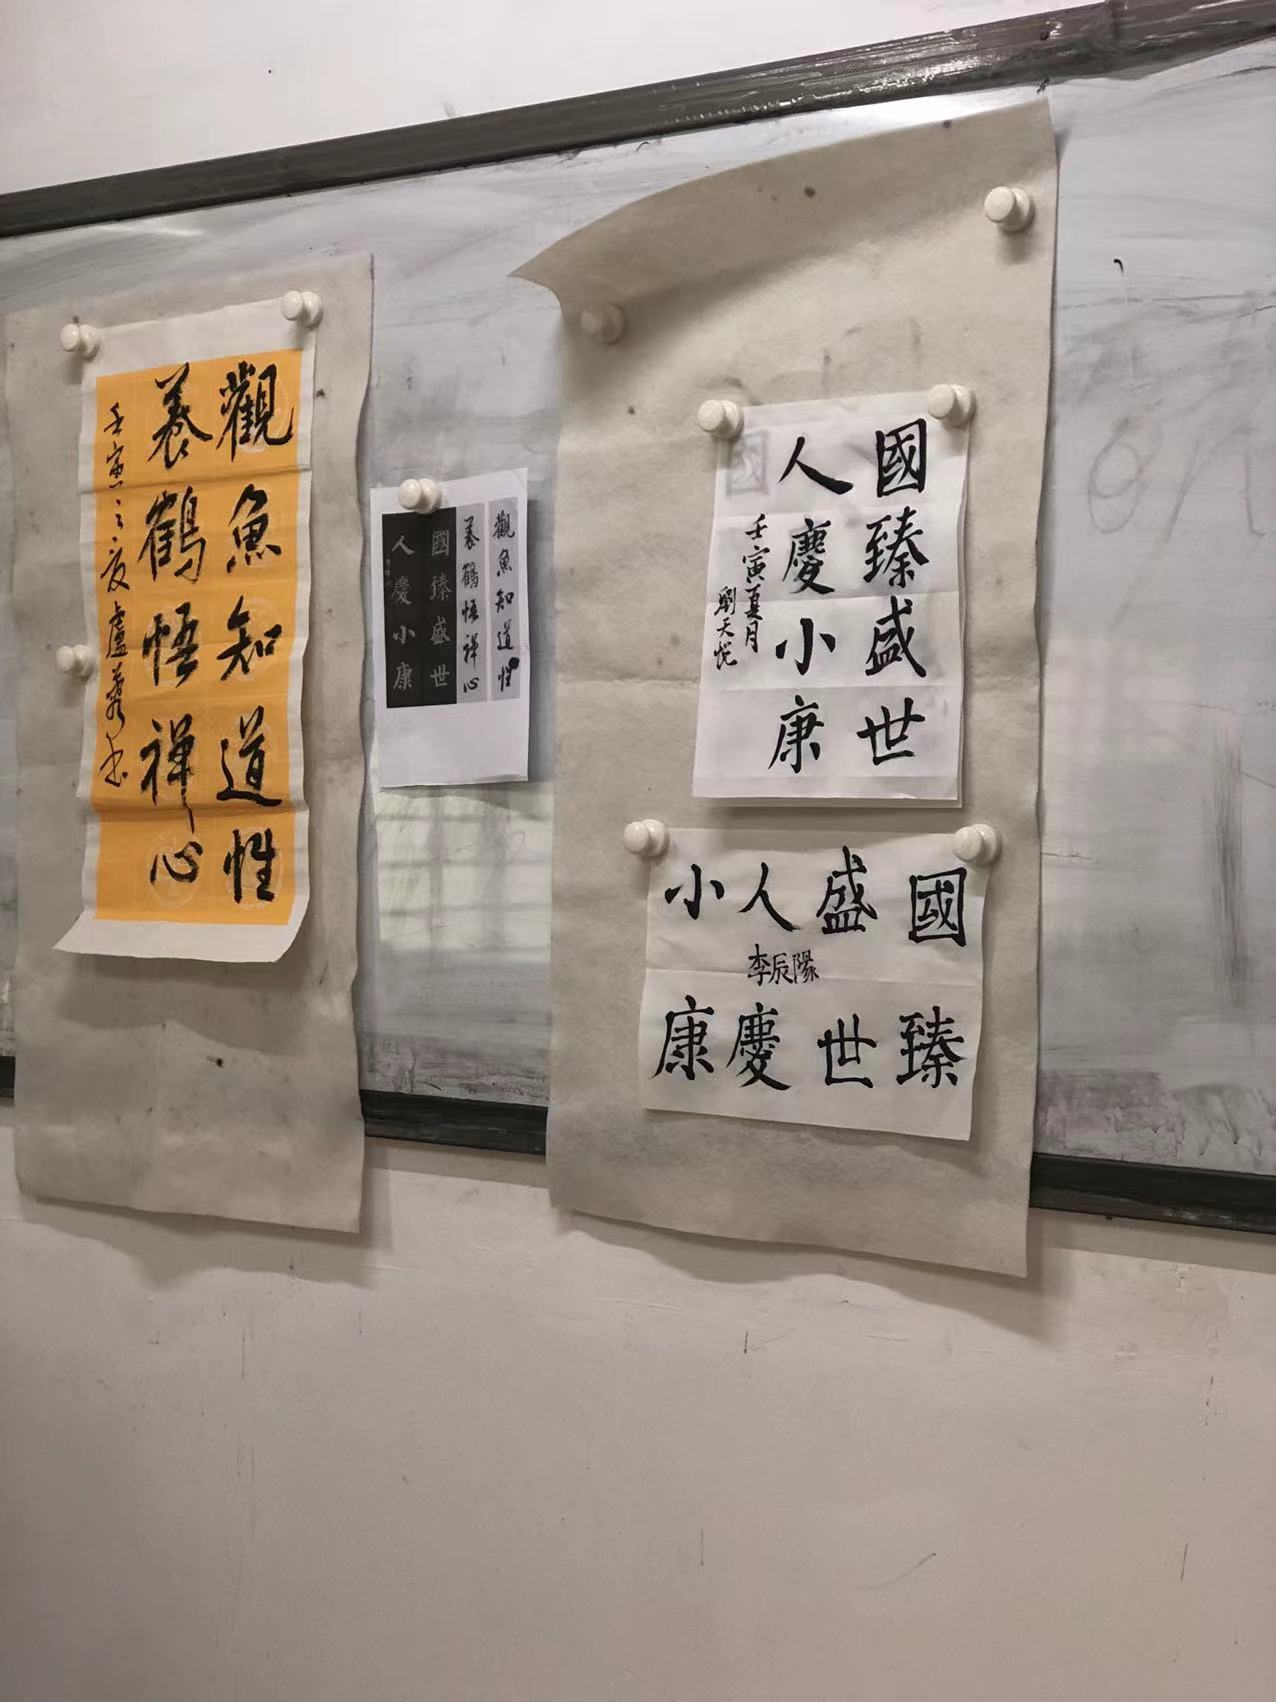 觀魚知道性
養鶴悟禅心
壬寅之夏盧書
觀魚知道性
養鶴悟禅心
國臻盛世
人慶小康
國臻盛世
人慶小康
壬寅夏月
劉天悦
國臻
盛世
人慶
小康
李辰陽